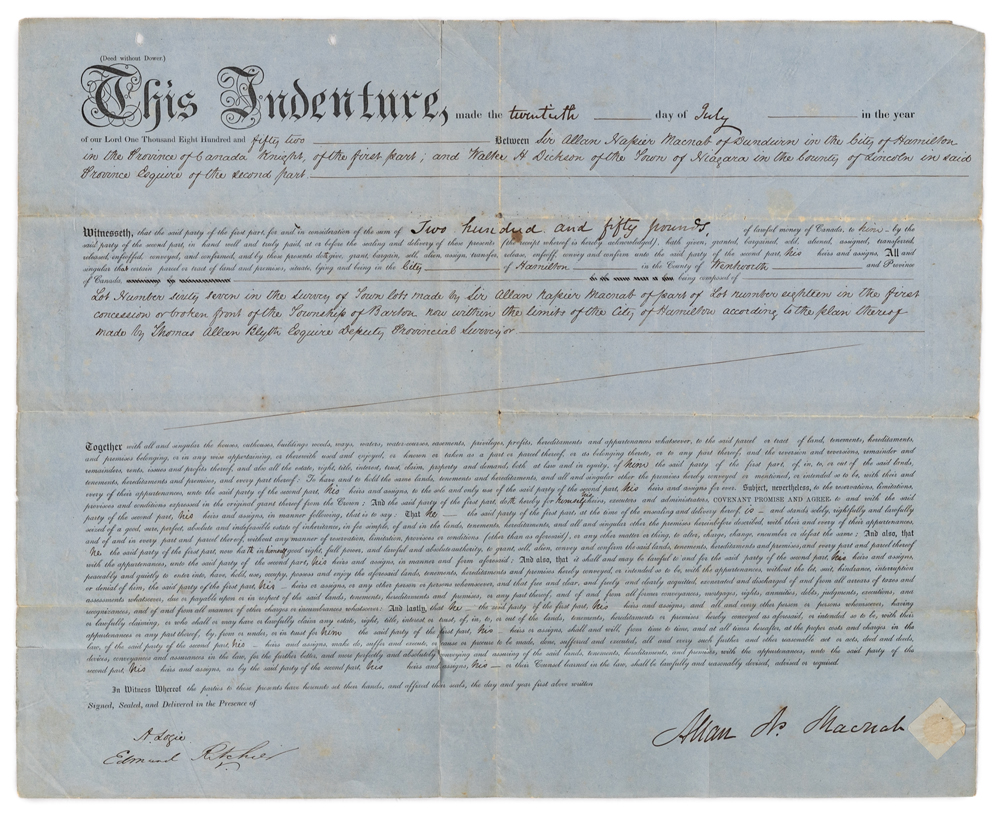 (Deed without Dower.)
This Indenture, made the twentieth day of July in the year
of our Lord One Thousand Eight Hundred and fifty two Between Sir Allan Napier Macnab of Dundurn in the City of Hamilton
in the Province of Canada Knight, of the first part; and Walter H Dickson of the Town of Niagara in the County of Lincoln in said
Province Esquire of the second part
Witnesseth, that the said party of the first part, for and in consideration of the sum of Two hundred and fifty pounds, of lawful money of Canada, to him by the
said party of the second part, in hand well and truly paid, at or before the sealing and delivery of these presents (the receipt whereof is hereby acknowledged), hath given, granted, bargained, sold, aliened, assigned, transferred,
released, enfeoffed, conveyed, and confirmed, and by these presents doth give, grant, bargain, sell, alien, assign, transfer, release, enfeoff, convey and confirm unto the said party of the second part, his heirs and assigns, All and
singular that certain parcel or tract of land and premises, situate, lying and being in the City of Hamilton in the County of Wentworth and Province
of Canada, being composed of
Lot Number sixty seven in the Survey of Town lots made by Sir Allan Napier Macnab of part of Lot number eighteen in the first
concession or broken front of the Township of Barton now within the limits of the City of Hamilton according to the plan thereof
made by Thomas Allan Blyth Esquire Deputy Provincial Surveyor
Together with all and singular the houses, outhouses, buildings woods, ways, waters, water-courses, easements, privileges, profits, hereditaments and appurtenances whatsoever, to the said parcel or tract of land, tenements, hereditaments,
and premises belonging, or in any wise appertaining, or therewith used and enjoyed, or known or taken as a part or parcel thereof, or as belonging thereto, or to any part thereof, and the reversion and reversions, remainder and
remainders, rents, issues and profits thereof, and also all the estate, right, title, interest, trust, claim, property and demand, both at law and in equity, of him the said party of the first part, of, in, to, or out of the said lands,
tenements, hereditaments and premises, and every part thereof: To have and to hold the same lands, tenements and hereditaments, and all and singular other the premises hereby conveyed or mentioned, or intended so to be, with their and
every of their appurtenances, unto the said party of the second part his heirs and assigns, to the sole and only use of the said party of the second part his heirs and assigns for ever. Subject, nevertheless, to the reservations, limitations,
provisoes and conditions expressed in the original grant thereof from the Crown: And the said party of the first part, doth hereby for himself his heirs, executors and administrators, COVENANT PROMISE AND AGREE to and with the said
party of the second part, his heirs and assigns, in manner following, that is to say: That he the said party of the first part, at the time of the ensealing and delivery hereof, is and stands solely, rightfully and lawfully
seized of a good, sure, perfect, absolute and indefeasible estate of inheritance, in fee simple, of and in the lands, tenements, hereditaments, and all and singular other the premises hereinbefore described, with their and every of their appurtenances,
and of and in every part and parcel thereof, without any manner of reservation, limitation, provisoes or conditions (other than as aforesaid), or any other matter or thing, to alter, charge, change, encumber or defeat the same; And also, that
he the said party of the first part, now hath in himself good right, full power, and lawful and absolute authority, to grant, sell, alien, convey and confirm the said lands, tenements, hereditaments and premises, and every part and parcel thereof
with the appurtenances, unto the said party of the second part, his heirs and assigns, in manner and form aforesaid; And also, that it shall and may be lawful to and for the said party of the second part his heirs and assigns,
peaceably and quietly to enter into, have, hold, use, occupy, possess and enjoy the aforesaid lands, tenements, hereditaments and premises hereby conveyed, or intended so to be, with the appurtenances, without the let, suit, hindrance, interruption
or denial of him, the said party of the first part his heirs or assigns, or any other person or persons whomsoever, and that free and clear, and freely and clearly acquitted, exonerated and discharged of and from all arrears of taxes and
assessments whatsoever, due or payable upon or in respect of the said lands, tenements, hereditaments and premises, or any part thereof, and of and from all former conveyances, mortgages, rights, annuities, debts, judgments, executions, and
recognizances, and of and from all manner of other charges or incumbrances whatsoever: And lastly, that he the said party of the first part, his heirs and assigns, and all and every other person or persons whomsoever, having
or lawfully claiming, or who shall or may have or lawfully claim any estate, right, title, interest or trust, of, in, to, or out of the lands, tenements, hereditaments or premises hereby conveyed as aforesaid, or intended so to be, with their
appurtenances or any part thereof, by, from or under, or in trust for him the said party of the first part, his heirs or assigns, shall and will, from time to time, and at all times hereafter, at the proper costs and charges in the
law, of the said party of the second part his heirs and assigns, make do, suffer and execute, or cause or procure to be made, done, suffered and executed, all and every such further and other reasonable act or acts, deed and deeds,
devices, conveyances and assurances in the law, for the further, better, and more perfectly and absolutely conveying and assuring of the said lands, tenements, hereditaments, and premises, with the appurtenances, unto the said party of the
second part, his heirs and assigns, as by the said party of the second part, his heirs and assigns, his or their Counsel learned in the law, shall be lawfully and reasonably devised, advised or required
In Witness Whereof the parties to these presents have hereunto set their hands, and affixed their seals, the day and year first above written
Signed, Sealed, and Delivered in the Presence of
A. Logie
Edmund Ritchie
Allan N. Macnab